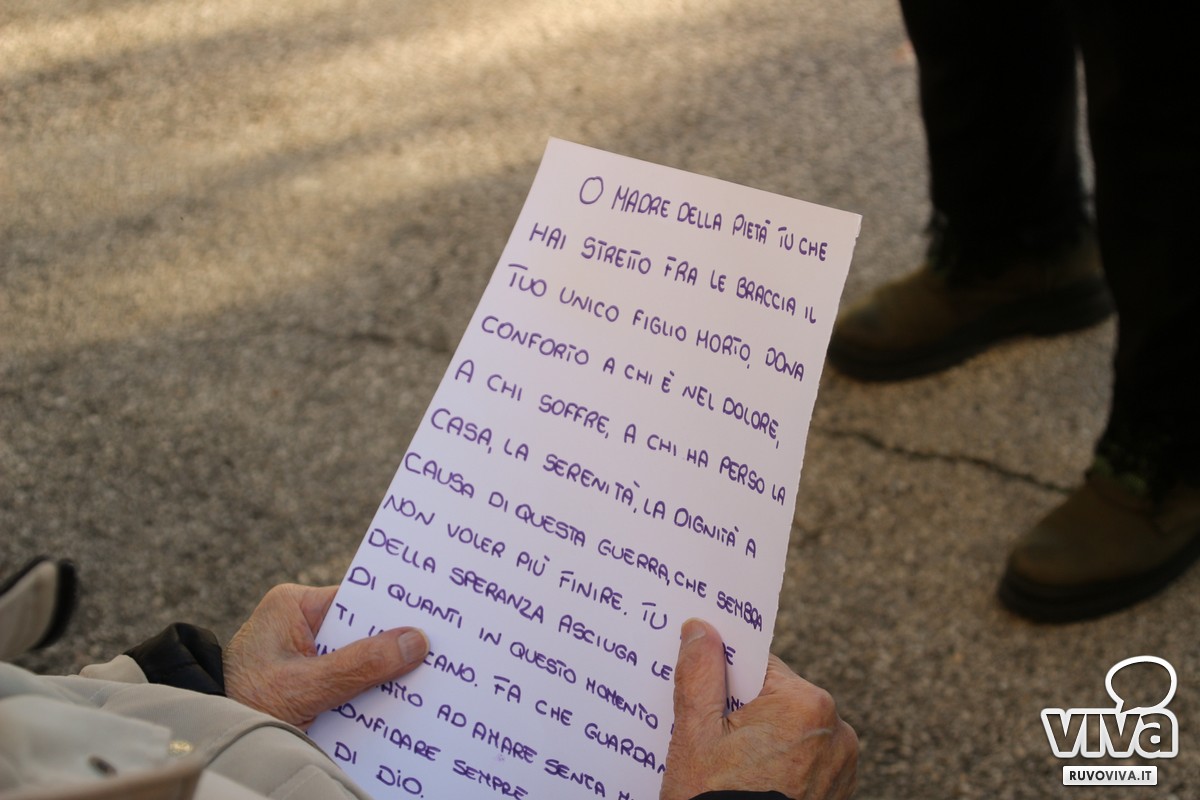 O MADRE DELLA PIETÀ TU CHE
HAI STRETTO FRA LE BRACCIA IL
TUO UNICO FIGLIO MORTO, DONA
CONFORTO A CHI È NEL DOLORE,
A CHI SOFFRE, A CHI HA PERSO LA
CASA, LA SERENITÀ, LA DIGNITÀ A
CAUSA DI QUESTA GUERRA, CHE SEMBRA
NON VOLER PIÙ FINIRE. TU
DELLA SPERANZA ASCIUGA LE
DI QUANTI IN QUESTO MOMENTO
TI CANO. FA CHE GUARDAN
AD AMARE SENZA
CONFIDARE SEMPRE
DI DIO.
VIVA
RUVOVIVA.IT